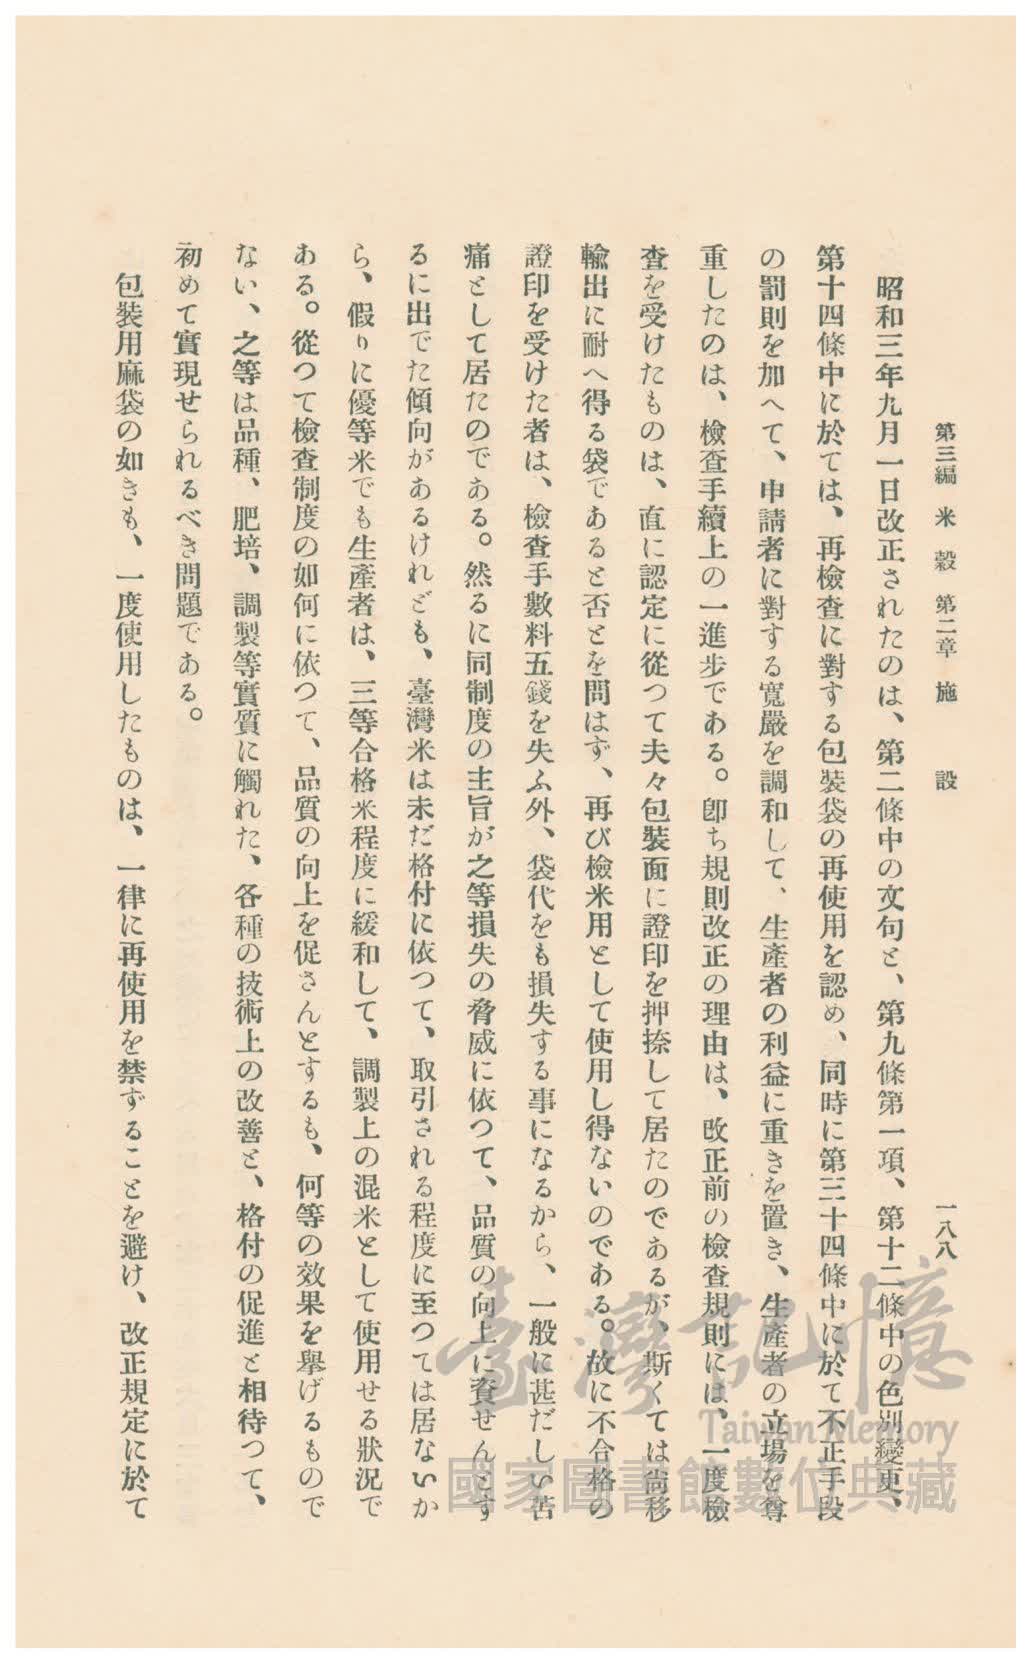 第三編 米穀 第二章 施設 一八八
昭和三年九月一日改正されたのは、第二條中の文句と、第九條第一項、第十二條中の色別變更、
第十四條中に於ては、再檢查に對する包裝袋の再使用を認め、同時に第三十四條中に於て不正手段
の罰則を加へて、申請者に對する寬嚴を調和して、生產者の利益に重きを置き、生產者の立場を尊
重したのは、檢查手續上の一進步である。卽ち規則改正の理由は、改正前の檢查規則には、一度檢
查を受けたものは、直に認定に從つて夫々包裝面に證印を押捺して居たのであるが、斯くては尙移
輸出に耐へ得る袋であると否とを問はず、再び檢米用として使用し得ないのである。故に不合格の
證印を受けた者は、檢查手數料五錢を失ふ外、袋代をも損失する事になるから、一般に甚だしい苦
痛として居たのである。然るに同制度の主旨が之等損失の脅威に依つて、品質の向上に資せんとす
るに出でた傾向があるけれども、臺灣米は未だ格付に依つて、取引される程度に至つては居ないか
ら、假りに優等米でも生產者は、三等合格米程度に緩和して、調製上の混米として使用せる狀況で
ある。從つて檢查制度の如何に依つて、品質の向上を促さんとするも、何等の效果を擧げるもので
ない、之等は品種、肥培、調製等實質に觸れた、各種の技術上の改善と、格付の促進と相待つて、
初めて實現せられるべき問題である。
包裝用麻袋の如きも、一度使用したものは、一律に再使用を禁ずることを避け、改正規定に於て
臺灣記憶
Taiwan Memory
國家圖書館數位典藏